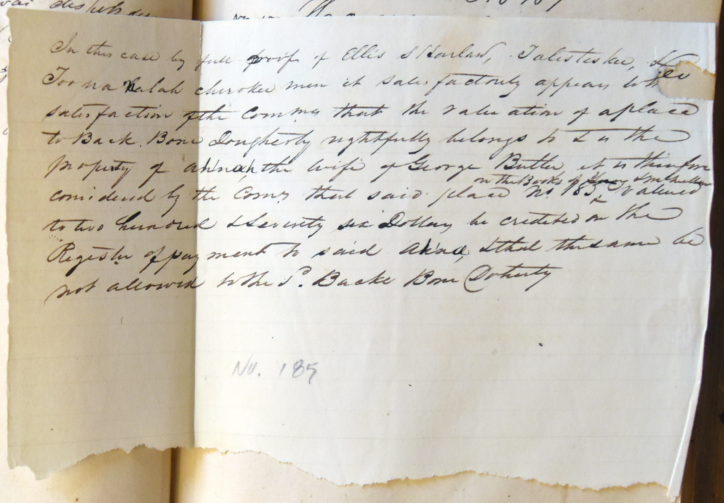 In this case by full proof of Ellis S Harlan, Talisteskee,
Too na Kalah cherokee men it satisfactorily appears to the
satisfaction of the Comms that the valuation of a place
to Back Bone Dougherty rightfully belongs to & is the
property of the wife of George Butler, it is therefore
on the Books of
considered by the Coms that said place No. 185 valued
to two hundred & seventy six Dollars be credited on the
Register of payment to said & that the same be
not allowed to the Sd. Backe Bone Doherty
No. 185